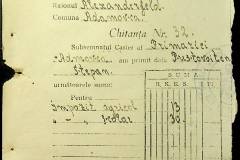 Raionul Alexanderfeld
Comuna Adamovca
Chitanța Nr. 32.
Subsemnatul Casier al Primăriei
Adamovca am primit dela Pustovoiten
Stepan.
următoarele sume:
SUMA
Pentru
Impozit agricol 13
" " școlar 30